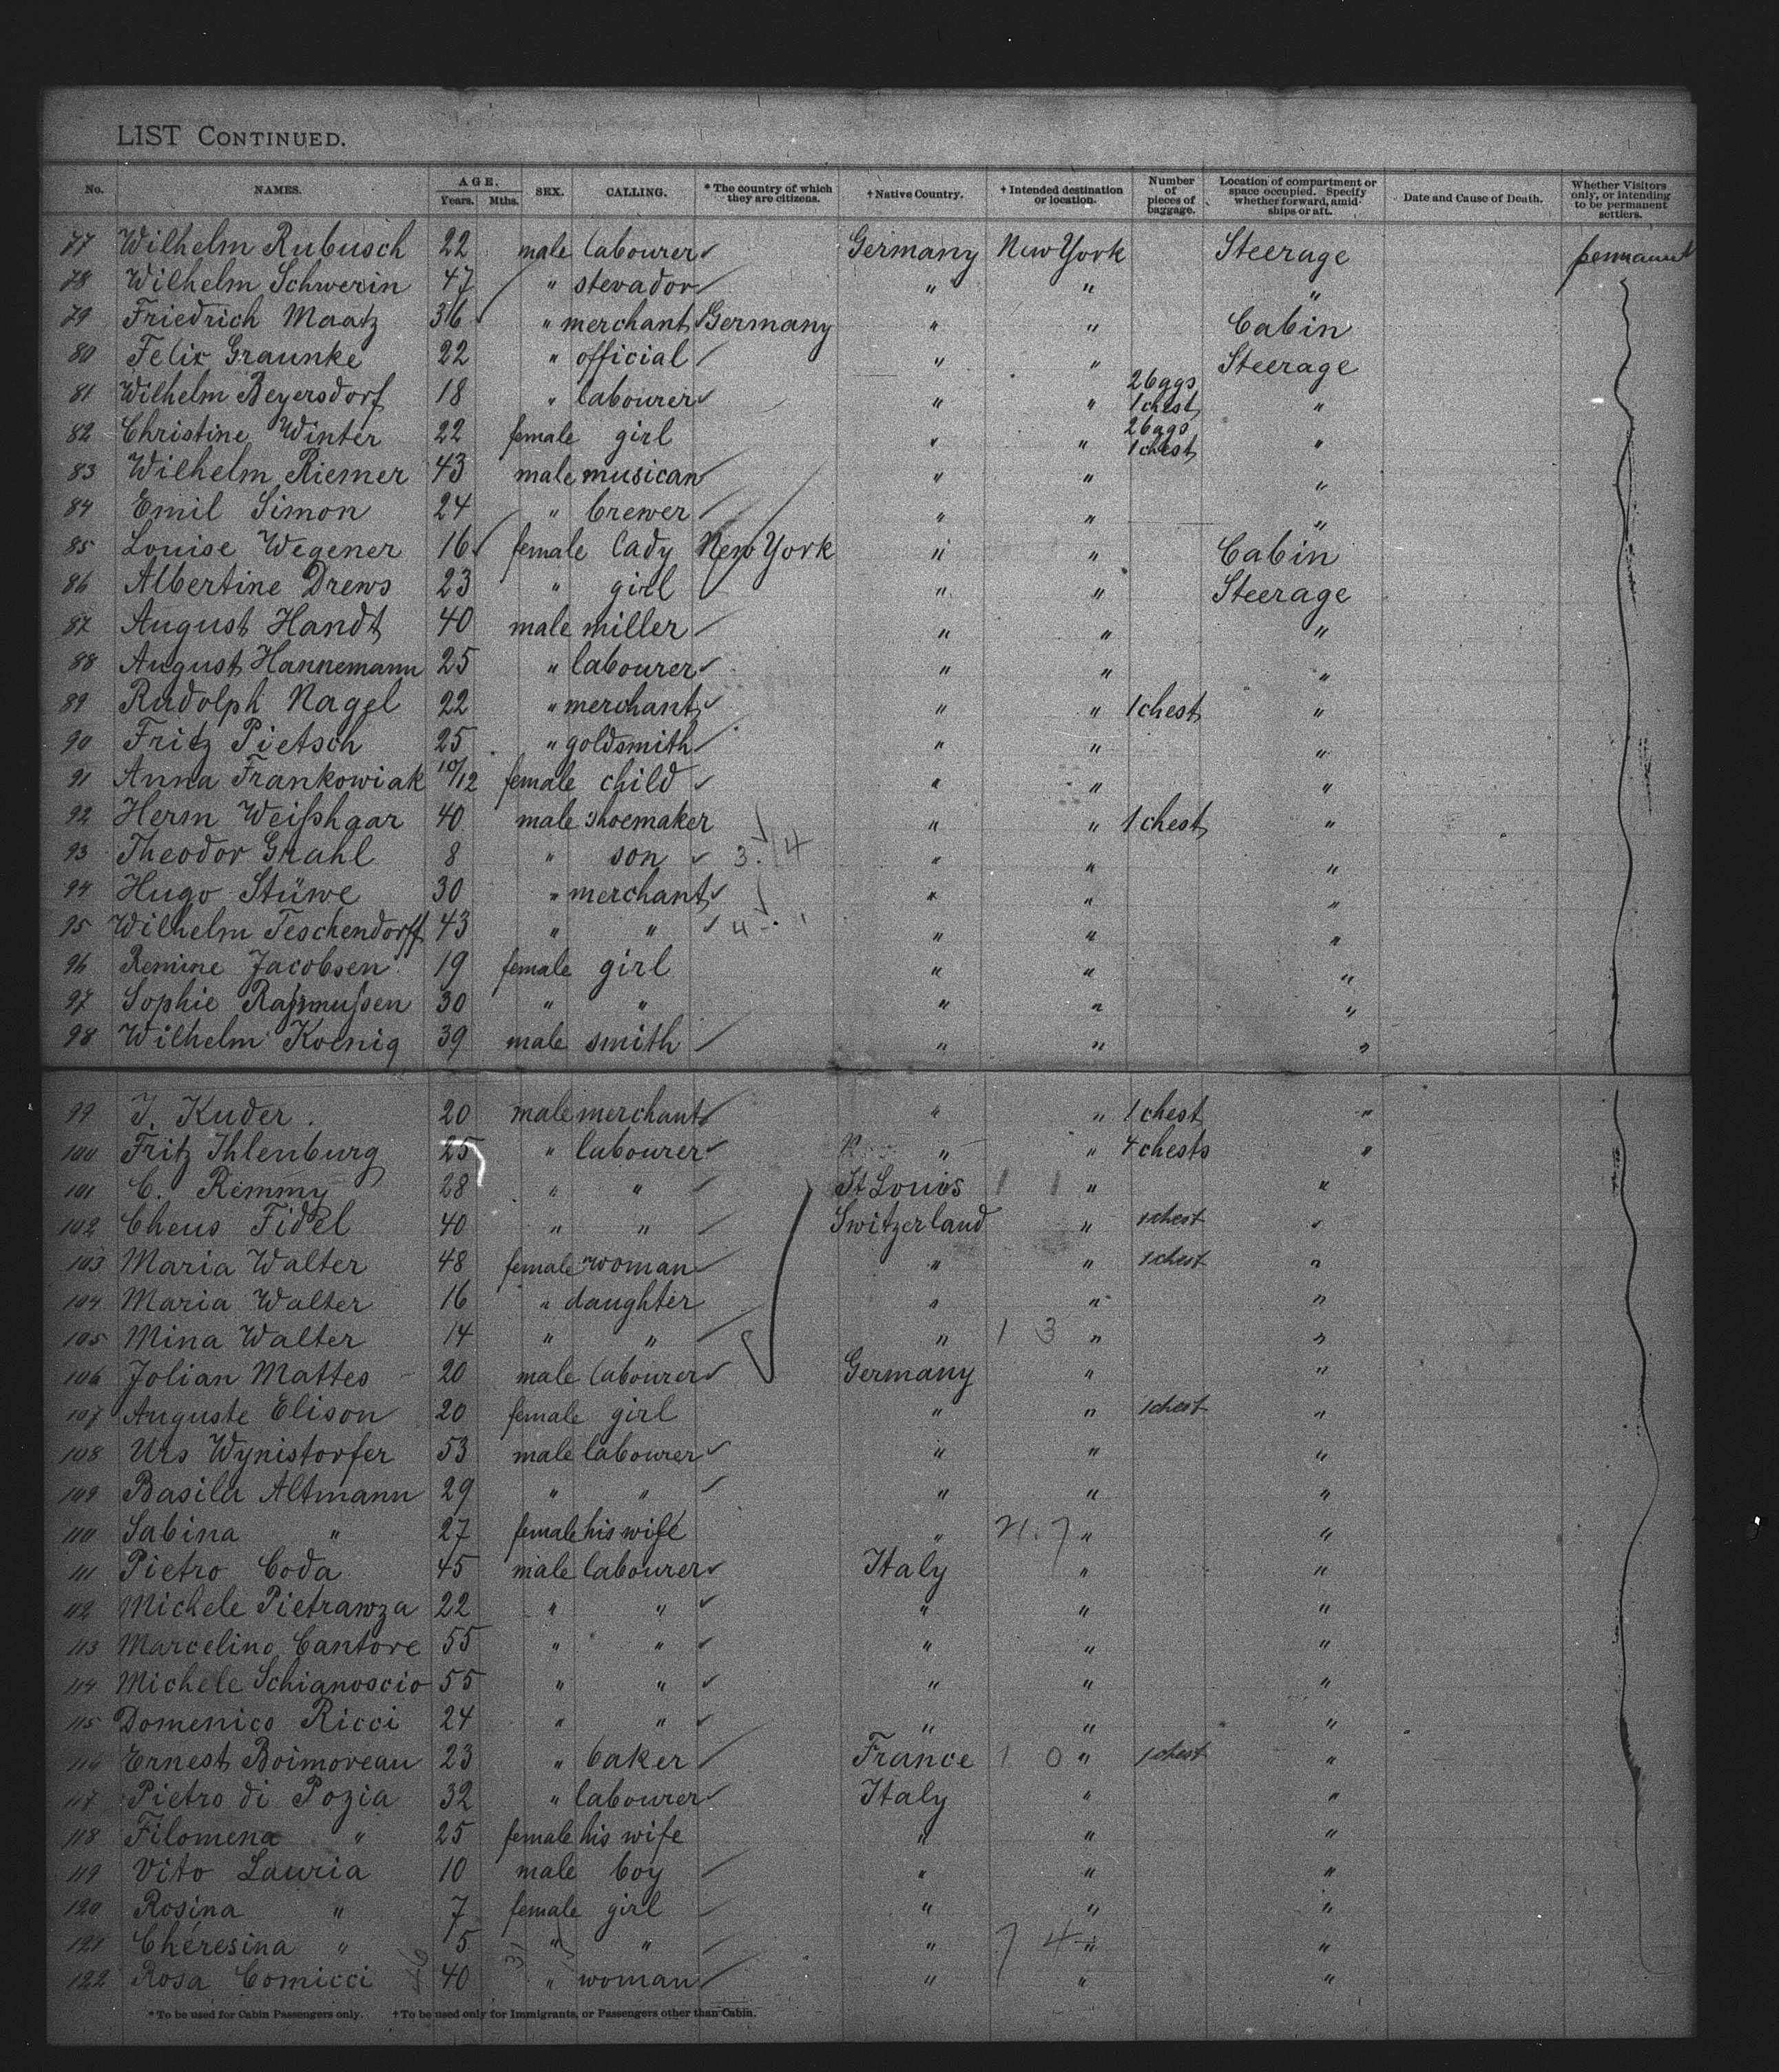 LIST CONTINUED.
No. NAMES. AGE. Years. Mths. SEX. CALLING. * The country of which they are citizens. † Native Country. † Intended destination or location. Number of pieces of baggage. Location of compartment or space occupied. Specify whether forward, amidships or aft. Date and Cause of Death. Whether Visitors only, or intending to be permanent settlers.
77 Wilhelm Rubusch 22 male labourer Germany New York Steerage permanent
78 Wilhelm Schwerin 47 " stevador " " "
79 Friedrich Maatz 36 " merchant Germany " " Cabin
80 Felix Graunke 22 " official " " Steerage
81 Wilhelm Beyersdorf 18 " labourer " " 2 bags 1 chest "
82 Christine Winter 22 female girl " " 2 bags 1 chest "
83 Wilhelm Riemer 43 male musican " " "
84 Emil Simon 24 " brewer " " "
85 Louise Wegener 16 female lady New York " " Cabin
86 Albertine Drews 23 " girl " " Steerage
87 August Handt 40 male miller " " "
88 August Hannemann 25 " labourer " " "
89 Rudolph Nagel 22 " merchant " " 1 chest "
90 Fritz Pietsch 25 " goldsmith " " "
91 Anna Frankowiak 10/12 female child " " "
92 Herm Weißhaar 40 male shoemaker " " 1 chest "
93 Theodor Grahl 8 " son 3. 4 " " "
94 Hugo Stüwe 30 " merchant " " "
95 Wilhelm Teschendorff 43 " " 4 " " "
96 Remine Jacobsen 19 female girl " " "
97 Sophie Raßmußen 30 " " " " "
98 Wilhelm Koenig 39 male smith " " "
99 J. Kuder. 20 male merchant " " 1 chest "
100 Fritz Ihlenburg 25 " labourer " " 4 chests "
101 C. Remmy 28 " " St Louis 1 1 " "
102 Cheus Fidel 40 " " Switzerland " 1 chest "
103 Maria Walter 48 female woman " " 1 chest "
104 Maria Walter 16 " daughter " " "
105 Mina Walter 14 " " " 1 3 " "
106 Jolian Mattes 20 male labourer Germany " "
107 Auguste Elison 20 female girl " " 1 chest "
108 Urs Wynistorfer 53 male labourer " " "
109 Basila Altmann 29 " " " " "
110 Sabina " 27 female his wife " 21. 7 " "
111 Pietro Coda 45 male labourer Italy " "
112 Michele Pietrawza 22 " " " " "
113 Marcelino Cantore 55 " " " " "
114 Michele Schianoscio 55 " " " " "
115 Domenico Ricci 24 " " " " "
116 Ernest Boimoreau 23 " baker France 1 0 " 1 chest "
117 Pietro di Pozia 32 " labourer Italy " "
118 Filomena " 25 female his wife " " "
119 Vito Lauria 10 male boy " " "
120 Rosina " 7 female girl " " "
121 Cheresina " 5 " " " 7 4 " "
122 Rosa Comicci 40 " woman " " "
* To be used for Cabin Passengers only. † To be used only for Immigrants, or Passengers other than Cabin.